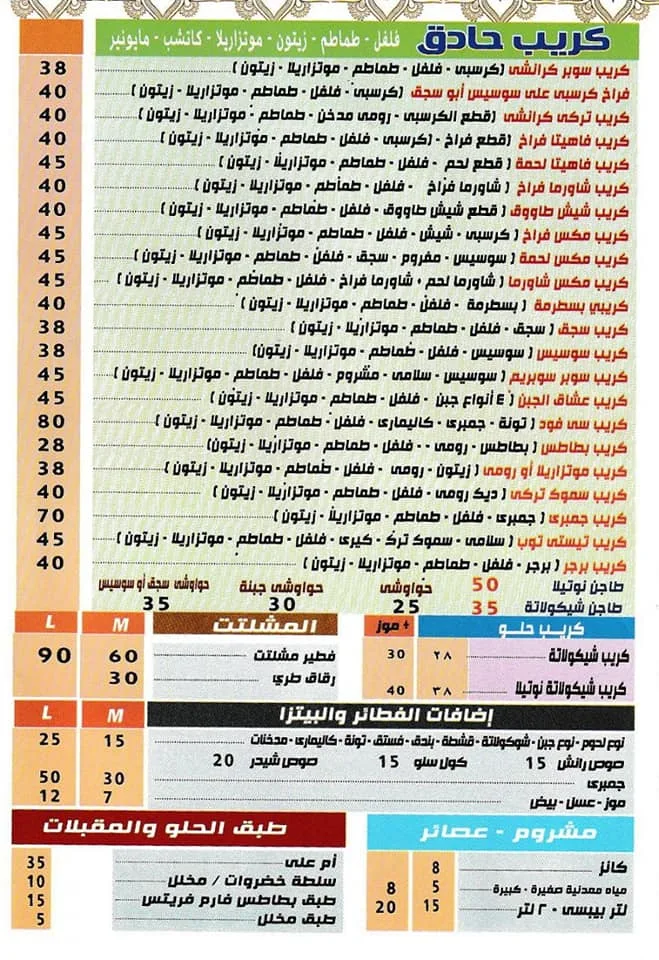 كريب حادق فلفل - طماطم - زيتون - موتزاريلا - كاتشب - مايونيز
كريب سوبر كرانشى (كرسبى - فلفل - طماطم - موتزاريلا - زيتون ) 38
فراخ كرسبى على سوسيس أبو سجق (كرسبى - فلفل - طماطم - موتزاريلا - زيتون ) 40
كريب تركى كرانشى ( قطع الكرسبى - رومى مدخن - طماطم - موتزاريلا - زيتون ) 40
كريب فاهيتا فراخ (قطع فراخ - (كرسبى - فلفل - طماطم - موتزاريلا - زيتون ) 40
كريب فاهيتا لحمة ( قطع لحم - فلفل - طماطم - موتزاريلا - زيتون ) 45
كريب شاورما فراخ ( شاورما فراخ - فلفل - طماطم - موتزاريلا - زيتون ) 40
كريب شيش طاووق ( قطع شيش طاووق - فلفل - طماطم - موتزاريلا - زيتون ) 40
كريب مكس فراخ ( كرسبى - شيش - فلفل - طماطم - موتزاريلا - زيتون ) 45
كريب مكس لحمة ( سوسيس - مفروم - سجق - فلفل - طماطم - موتزاريلا - زيتون ) 45
كريب مكس شاورما ( شاورما لحم + شاورما فراخ - فلفل - طماطم - موتزاريلا - زيتون ) 45
كريبي بسطرمة ( بسطرمة - فلفل - طماطم - موتزاريلا - زيتون ) 40
كريب سجق ( سجق - فلفل - طماطم - موتزاريلا - زيتون ) 38
كريب سوسيس ( سوسيس - فلفل - طماطم - موتزاريلا - زيتون) 38
كريب سوبر سوبريم ( سوسيس - سلامى - مشروم - فلفل - طماطم - موتزاريلا - زيتون ) 45
كريب عشاق الجبن ( ٤ أنواع جبن - فلفل - طماطم - موتزاريلا - زيتون ) 45
كريب سى فود ( تونة - جمبرى - كاليمارى - فلفل - طماطم - موتزاريلا - زيتون ) 80
كريب بطاطس ( بطاطس - رومى - - فلفل - طماطم - موتزاريلا - زيتون) 28
كريب موتزاريلا أو رومى ( زيتون - رومى - فلفل - طماطم - موتزاريلا - زيتون ) 38
كريب سموك تركى ( ديك رومى - فلفل - طماطم - موتزاريلا - زيتون ) 40
كريب جمبرى ( جمبرى - فلفل - طماطم - موتزاريلا - زيتون ) 70
كريب تيستى توب ( سلامى - سموك ترك - كيرى - فلفل - طماطم - موتزاريلا - زيتون ) 45
كريب برجر ( برجر - فلفل - طماطم - موتزاريلا - زيتون ) 40
طاجن نوتيلا 50 حواوشى حواوشى جبنة حواوشى سجق أو سوسيس
طاجن شيكولاتة 35 25 30 35
كريب حلو + موز
كريب شيكولاتة ٢٨ 30
كريب شيكولاتة نوتيلا ٣٨ 40
المشلتت M L
فطير مشلتت 60 90
رقاق طري 30
إضافات الفطائر والبيتزا M L
نوع لحوم - نوع جبن - شوكولاتة - قشطة - بندق - فستق - تونة - كاليمارى - مدخنات 15 25
صوص رانش 15 كول سلو 15 صوص شيدر 20
جمبرى 30 50
موز - عسل - بيض 7 12
مشروم - عصائر
كانز 8
مياه معدنية صغيرة - كبيرة 5 8
لتر بيبسى - ٢ لتر 15 20
طبق الحلو والمقبلات
أم على 35
سلطة خضروات / مخلل 10
طبق بطاطس فارم فريتس 15
طبق مخلل 5